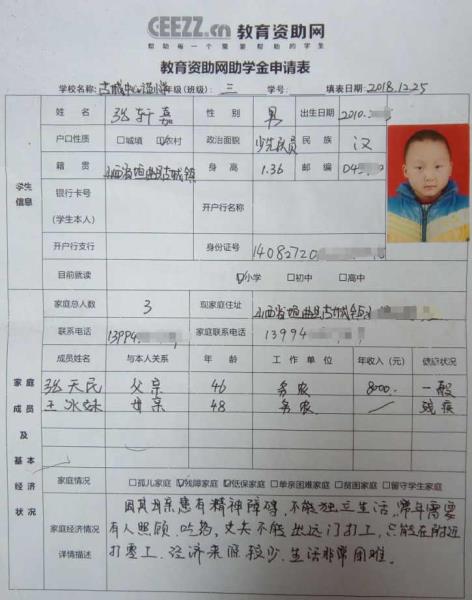 CEEZZ.cn 教育资助网
帮助每一个需要帮助的学生
教育资助网助学金申请表
学校名称: 古城中心 年级(班级): 三 学号: 填表日期: 2018.12.25
姓名 张轩嘉 性别 男 出生日期 2010.
户口性质 □城填 ☑农村 政治面貌 少先队员 民族 汉
籍贯 山西省垣曲县古城镇 身高 1.36 邮编 04
学生信息
银行卡号
(学生本人)
开户行名称
开户行支行 身份证号 14082720
目前就读 ☑小学 □初中 □高中
家庭总人数 3 现家庭住址 山西省垣曲县古城镇
联系电话 13994 家庭联系电话 13994
成员姓名 与本人关系 年龄 工作单位 年收入(元) 健康状况
张天民 父亲 46 务农 8000. 一般
王冰妹 母亲 48 务农 / 残疾
家庭成员及基本经济状况
家庭情况 □孤儿家庭 ☑残障家庭 ☑低保家庭 □单亲困难家庭 □贫困家庭 □留守学生家庭
家庭经济情况
详情描述
因其母亲患有精神障碍,不能独立生活,常年需要
有人照顾、吃药,丈夫不能出远门打工,只能在附近
打零工,经济来源较少,生活非常困难。